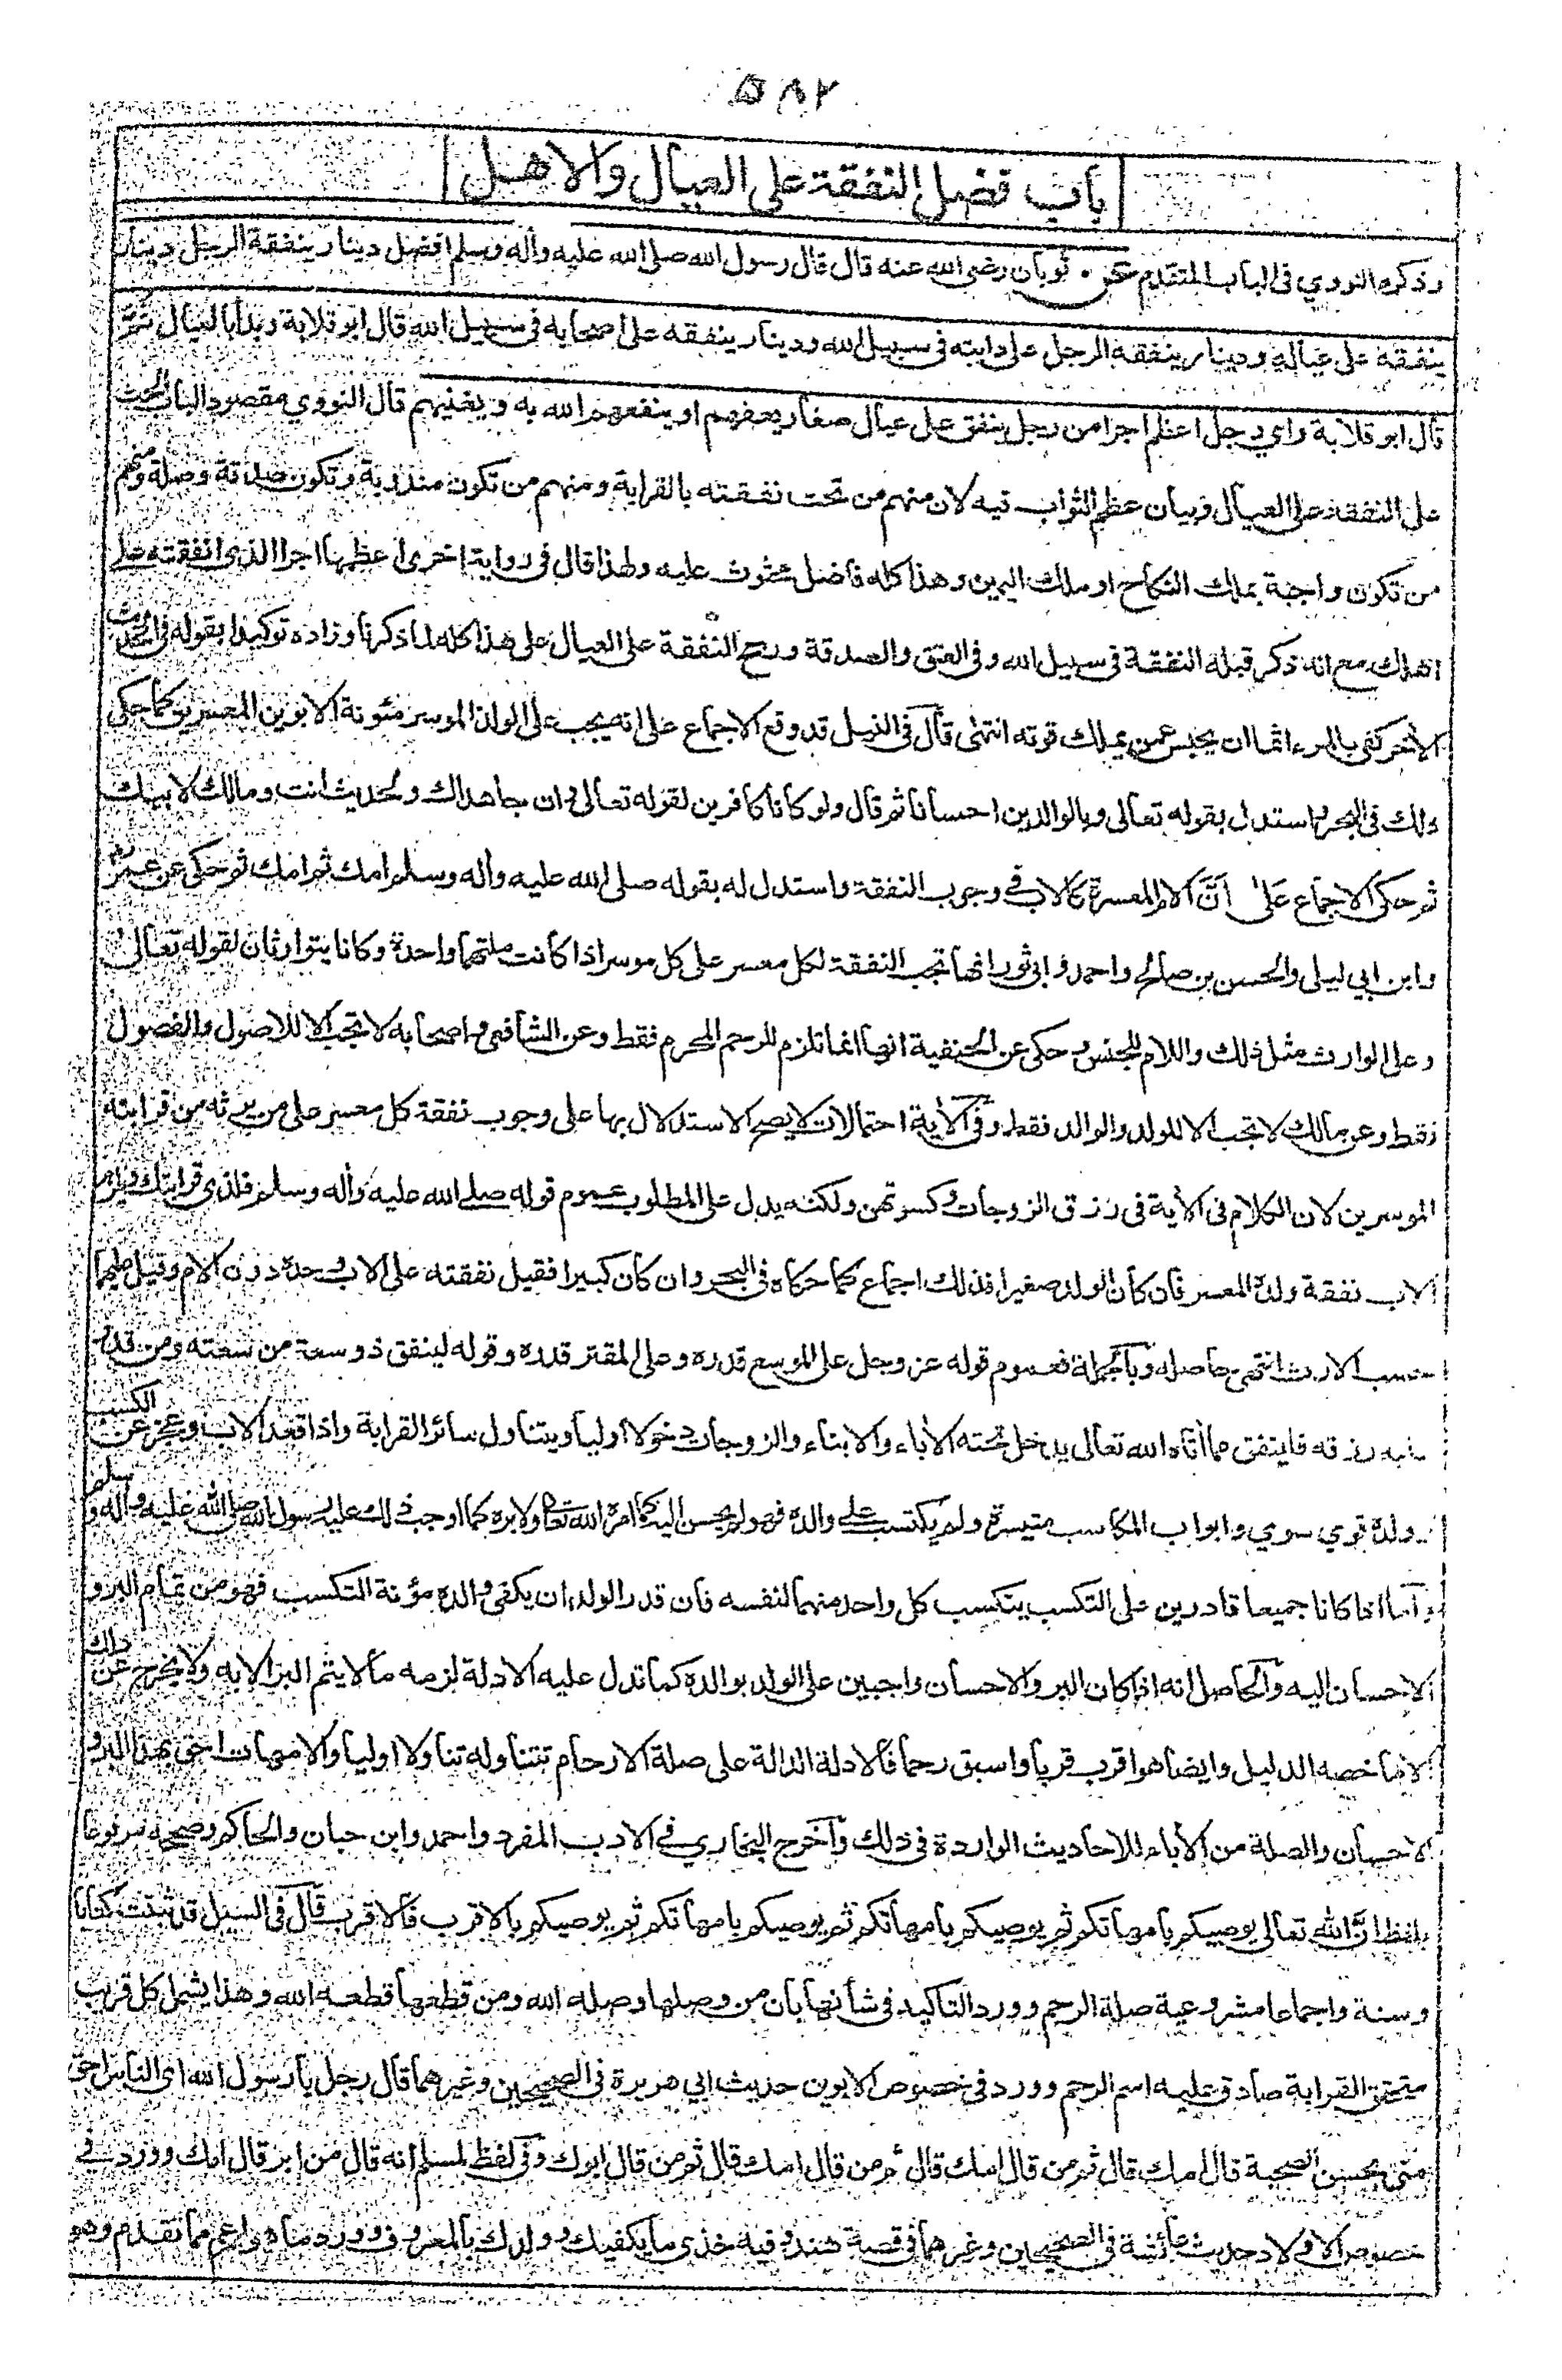 ٥٨٢
باب فضل النفقة على العيال والاهل
وذكره النووي في الباب المتقدم عن ثوبان رضي الله عنه قال قال رسول الله صلى الله عليه وأله وسلم افضل دينار ينفقه الرجل دينار
ينفقه على عياله ودينار ينفقه الرجل على دابته في سبيل الله ودينار ينفقه على اصحابه في سبيل الله قال ابو قلابة وبدأ بالعيال ثم
قال ابو قلابة واي رجل اعظم اجرا من رجل ينفق على عيال صغار يعفهم او ينفعهم الله به ويغنيهم قال النووي مقصود الباب الحث
على النفقة على العيال وبيان عظم الثواب فيه لان منهم من تجب نفقته بالقرابة ومنهم من تكون مندوبة وتكون صدقة وصلة ومنهم
من تكون واجبة بملك النكاح او ملك اليمين وهذا كله فاضل محثوث عليه ولهذا قال في رواية اخرى اعظمها اجرا الذي انفقته على
اهلك مع انه ذكر قبله النفقة في سبيل الله وفي العتق والصدقة ورجح النفقة على العيال على هذا كله لما ذكرنا وزاده توكيدا بقوله في الحديث
الأخر كفى بالمرء اثما ان يحبس عمن يملك قوته انتهى قال في النيل قد وقع الاجماع على انه يجب على الولد الموسر مئونة الابوين المعسرين كما حكى
ذلك في البحر واستدل بقوله تعالى وبالوالدين احسانا ثم قال ولو كانا كافرين لقوله تعالى وان جاهداك ولحديث انت ومالك لابيك
ثم حكى الاجماع على أنَّ الام المعسرة كالاب في وجوب النفقة واستدل له بقوله صلى الله عليه وأله وسلم امك ثم امك ثم حكى عن عمر رض
وابن ابي ليلى والحسن بن صالح واحمد وابي ثور انها تجب النفقة لكل معسر على كل موسر اذا كانت ملتهما واحدة وكانا يتوارثان لقوله تعالى
وعلى الوارث مثل ذلك واللام للجنس وحكى عن الحنفية انها انما تلزم للرحم المحرم فقط وعن الشافعي واصحابه لا تجب الا للاصول والفصول
فقط وعن مالك لا تجب الا للولد والوالد فقط وفي الأية احتمالات لا يصح الاستدلال بها على وجوب نفقة كل معسر على من يرثه من قرابته
الموسرين لان الكلام في الأية في رزق الزوجات وكسوتهن ولكنه يدل على المطلوب عموم قوله صلى الله عليه وأله وسلم فلذي قرابتك ويلزم
الاب نفقة ولده المعسر فان كان الولد صغيرا فذلك اجماع كما حكاه في البحر وان كان كبيرا فقيل نفقته على الاب وحده دون الام وقيل عليهما
حسب الارث انتهى حاصله وبالجملة فعموم قوله عز وجل على الموسع قدره وعلى المقتر قدره وقوله لينفق ذو سعة من سعته ومن قدر
عليه رزقه فلينفق مما أتاه الله تعالى يدخل تحته الأباء والابناء والزوجات دخولا اوليا ويتناول سائر القرابة واذا قعد الاب وعجز عن الكسب
وولده قوي سوي وابواب المكاسب متيسرة ولم يكتسب على والده فهو لم يحسن اليه كما امره الله تعالى ولا بره كما اوجب ذلك عليه رسول الله صلى الله عليه وأله وسلم
واما اذا كانا جميعا قادرين على التكسب يتكسب كل واحد منهما لنفسه فان قدر الولد ان يكفي والده مؤنة التكسب فهو من تمام البر و
الاحسان اليه والحاصل انه اذا كان البر والاحسان واجبين على الولد بوالده كما تدل عليه الادلة لزمه ما لا يتم البر الا به ولا يخرج عن ذلك
الا ما خصه الدليل وايضا هو اقرب قربا واسبق رحما فالادلة الدالة على صلة الارحام تتناوله تناولا اوليا والامهات احق بهذا البر و
الاحسان والصلة من الأباء للاحاديث الواردة في ذلك وأخرج البخاري في الادب المفرد واحمد وابن حبان والحاكم وصححه مرفوعا
بلفظ انَّ الله تعالى يوصيكم بامهاتكم ثم يوصيكم بامهاتكم ثم يوصيكم بامهاتكم ثم يوصيكم بالاقرب فالاقرب قال في السيل قد ثبتت كتابا
وسنة واجماعا مشروعية صلة الرحم وورد التاكيد في شأنها بان من وصلها وصله الله ومن قطعها قطعه الله وهذا يشمل كل قريب
متحقق القرابة صادق عليه اسم الرحم وورد في خصوص الابوين حديث ابي هريرة في الصحيحين وغيرهما قال رجل يا رسول الله اى الناس احق
مني بحسن الصحبة قال امك قال ثم من قال امك قال ثم من قال امك قال ثم من قال ابوك وفي لفظ لمسلم انه قال من ابر قال امك وورد في
خصوص الاولاد حديث عائشة في الصحيحين وغيرهما في قصة هند وفيه خذي ما يكفيك وولدك بالمعروف وورد ما هو اعم مما تقدم وهو